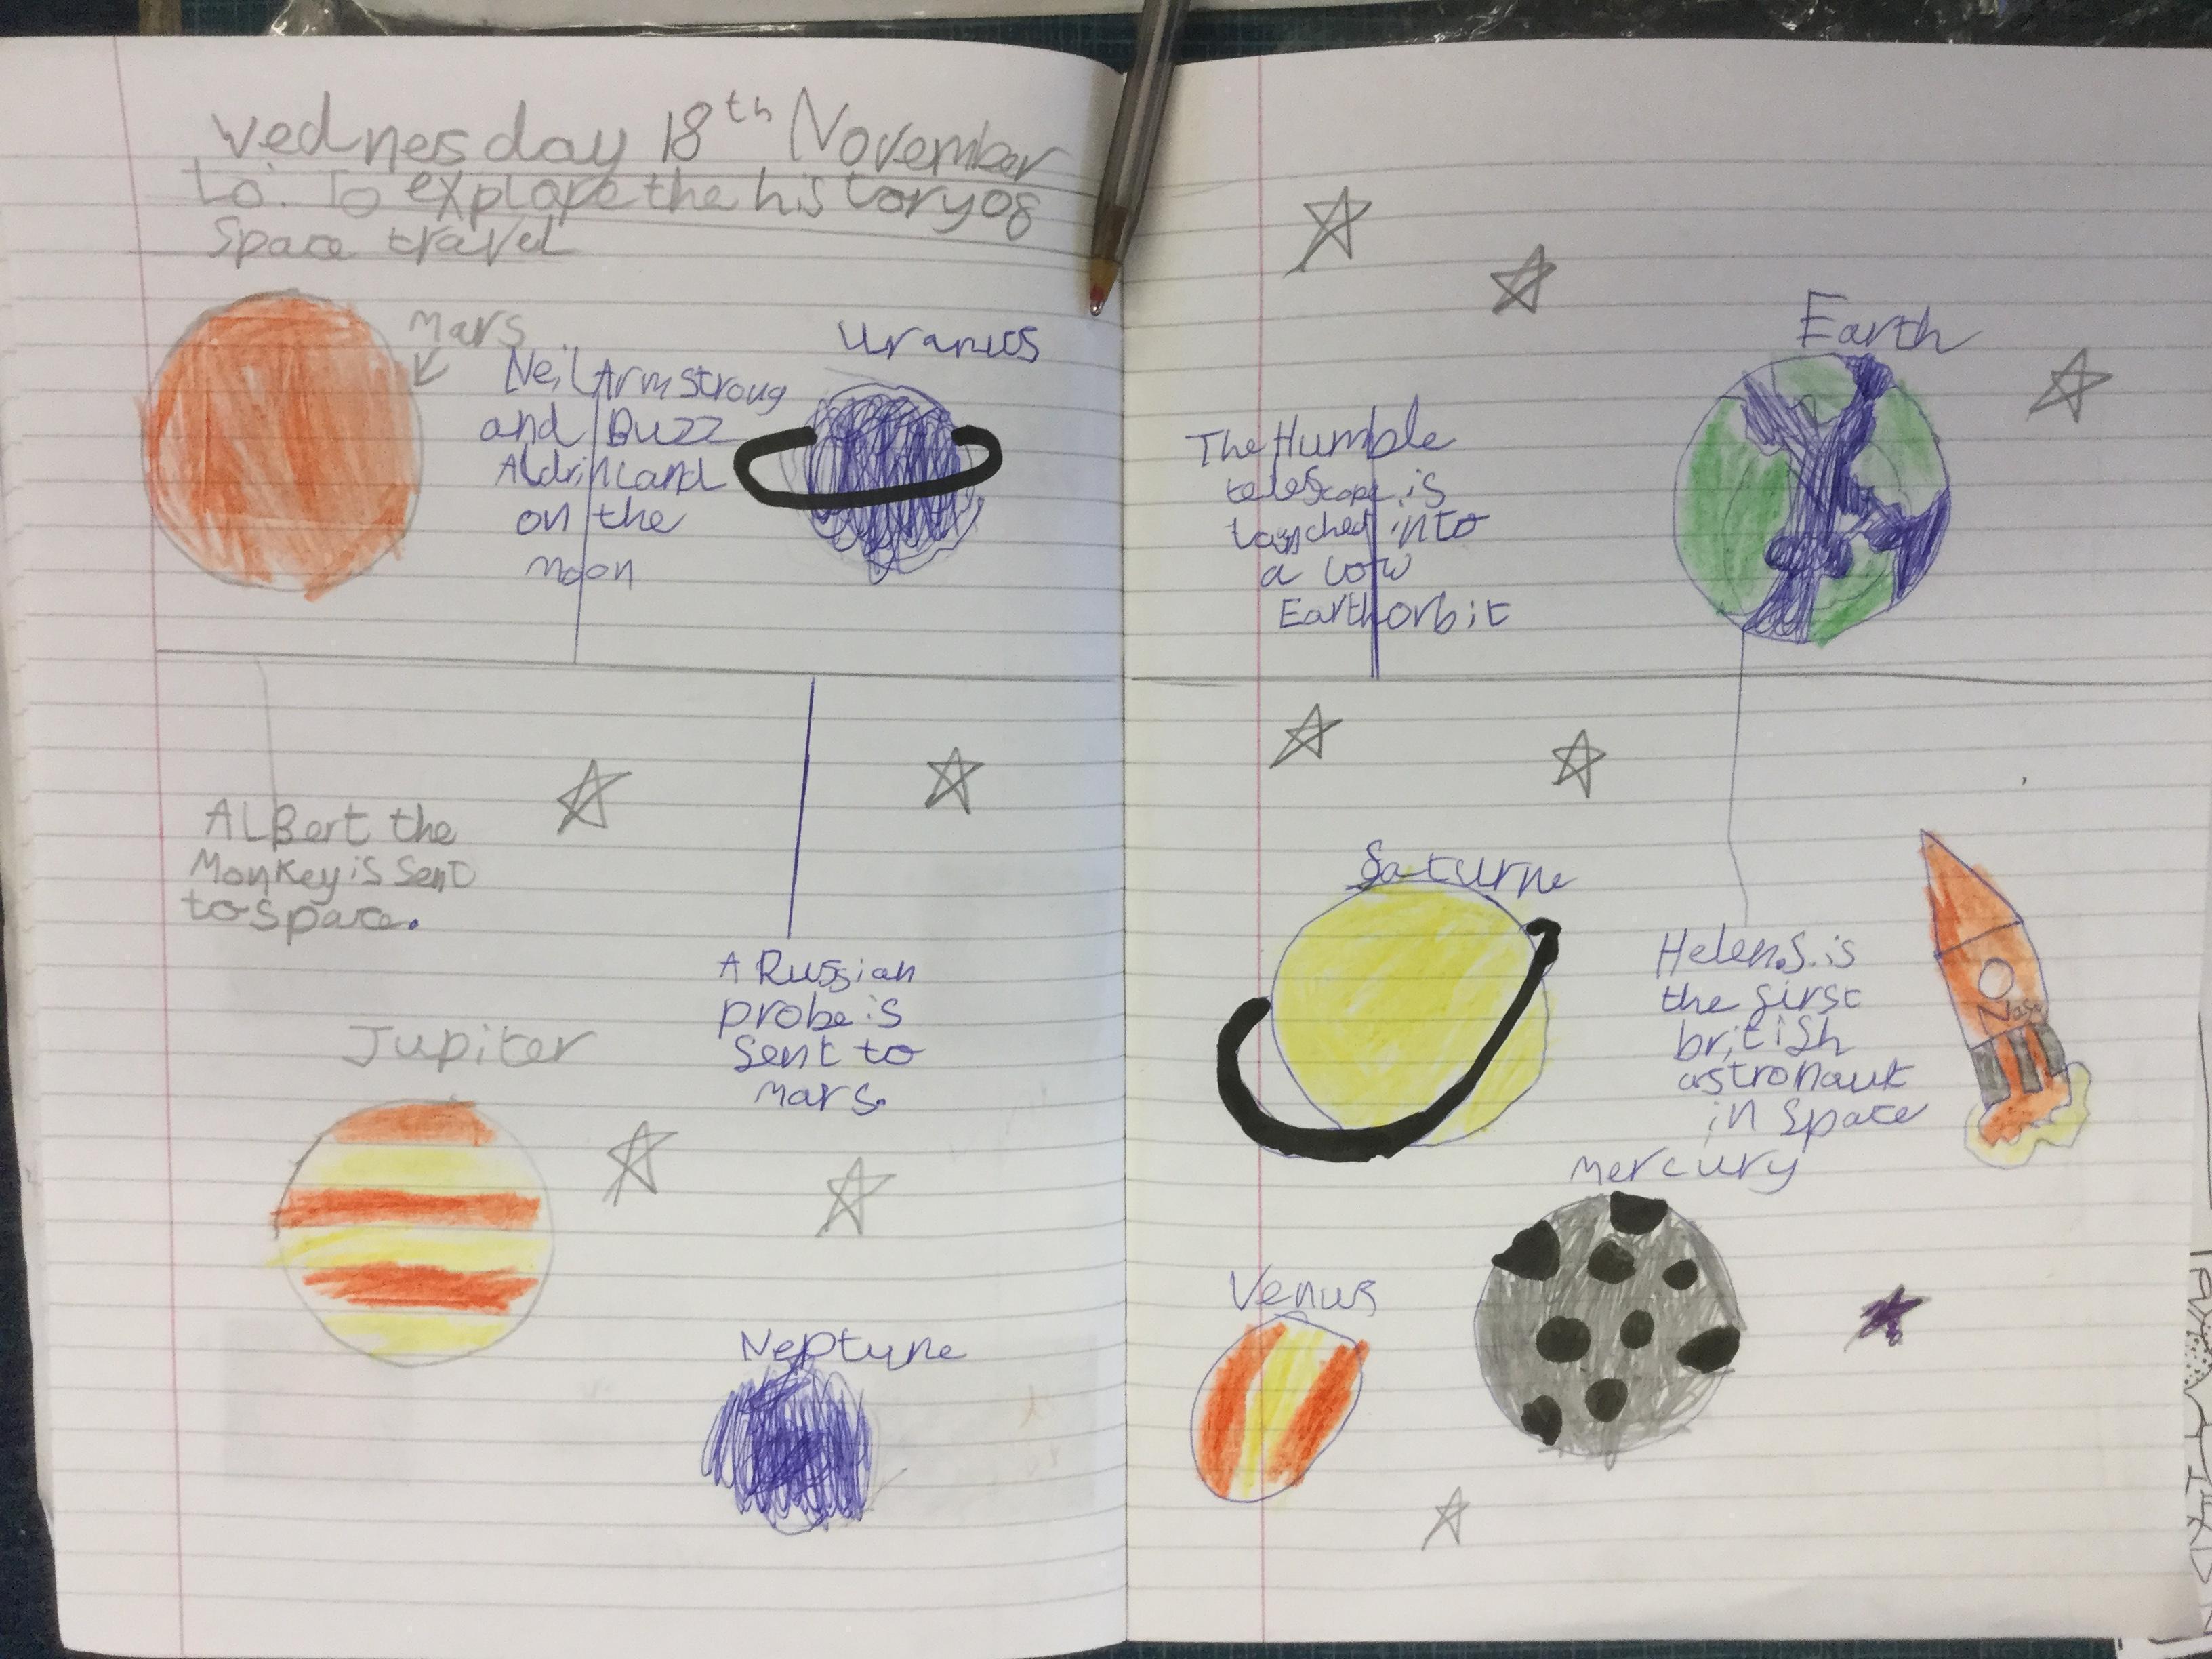 Wednesday 18th November
Lo: To explore the history of
Space travel
Mars
Neil Armstroug
and Buzz
Aldrin Land
on the
Moon
Uranus
ALBert the
Monkey is Sent
to space.
A Russian
probe is
Sent to
Mars.
Jupiter
Neptune
Earth
The Humble
telescope is
launched into
a low
Earth orbit
Saturne
Helen.S. is
the first
british
astronaut
in Space
Nasa
Mercury
Venus